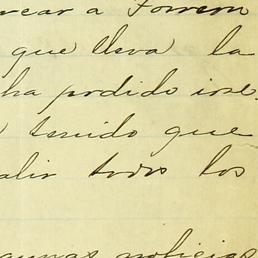 a Torreon
que lleva la
ha podido irse
tenido que
alir todos los
gunas noticias